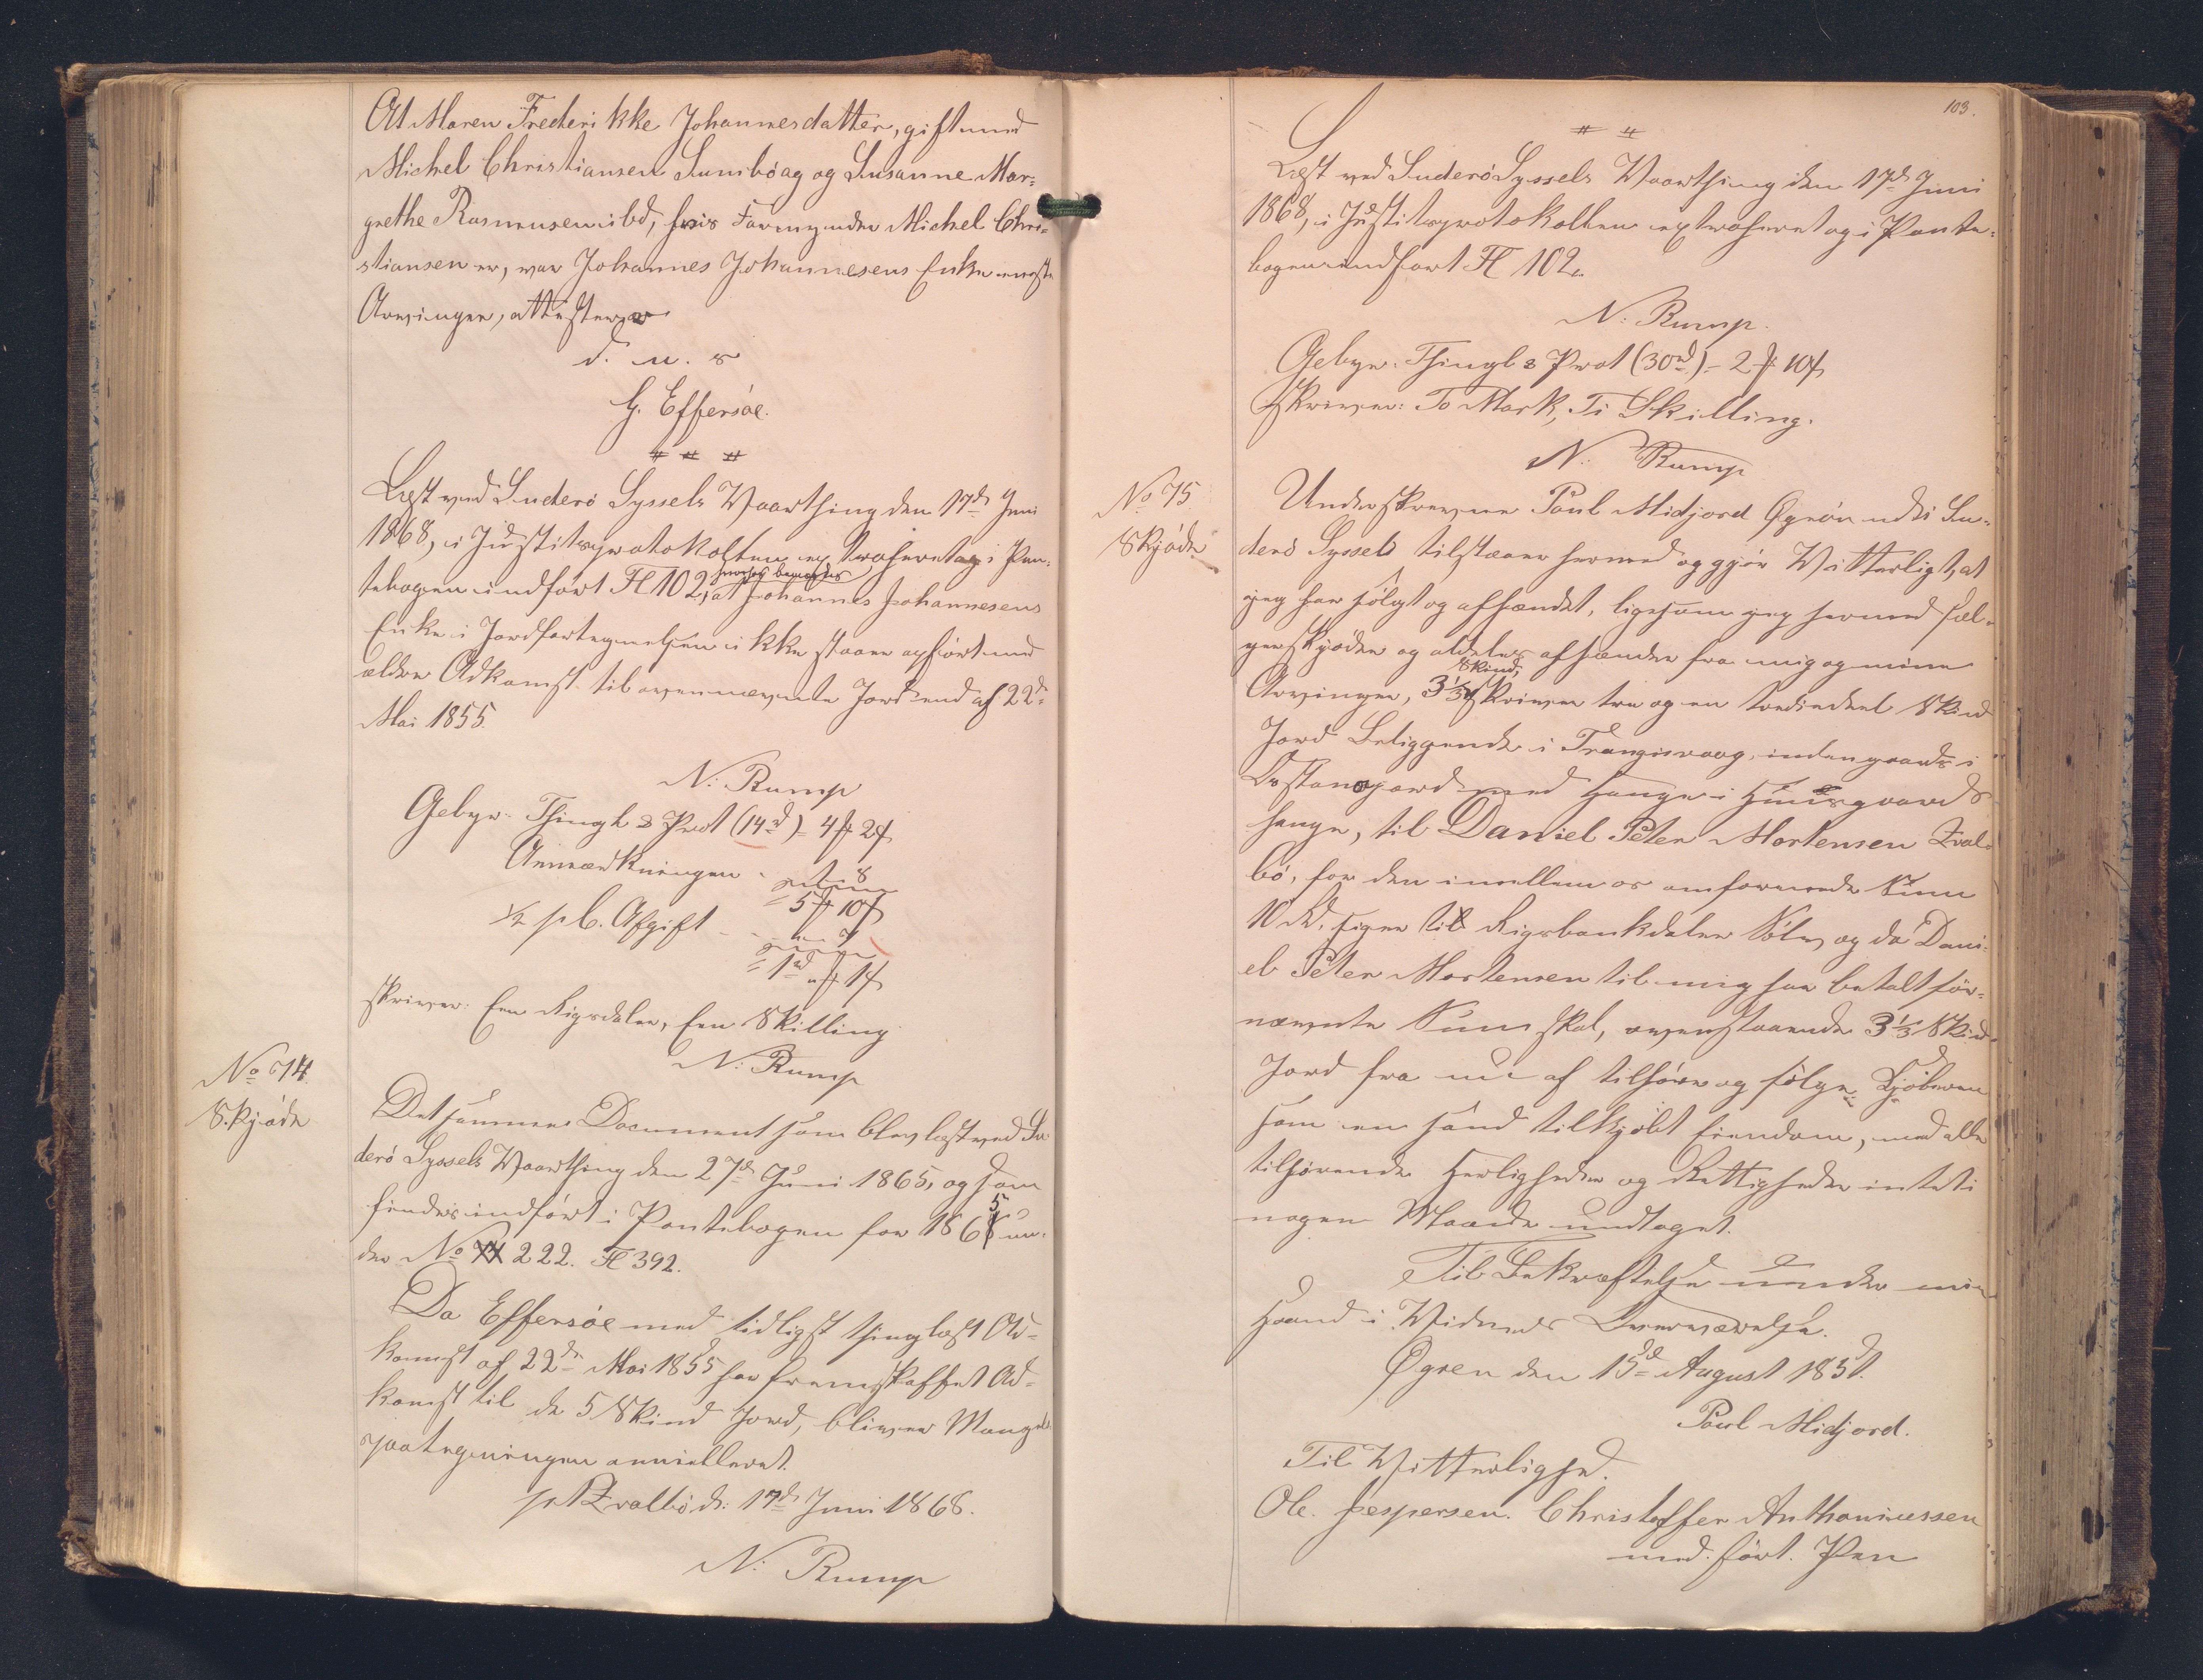 At Maren Frederikke Johannesdatter, gift med
Michel Christiansen Sumbøag og Susanne Mar-
grethe Rasmusen ibd, hvis Formynder Michel Chri-
stiansen er, var Johannes Johannesens Enke eneste
Arvinger, attesterer
d. u. s
G. Effersøe.
Læst ved Suderø Syssels Vaarthing den 17de Juni
1868, i Justitsprotokollen extraheret og i Pan-
tebogen indført Fl 102, hvorhos bemærkes at Johannes Johannesens
Enke i Jordfortegnelsen ikke staaer opført med
ældre Adkomst til ovennævnte Jord end af 22de
Mai 1855.
N: Rump
Gebyr: Thingl & Prot (14 rd) = 4 # 2 ß
Anmærkningen - " 8
= 5 # 10 ß
½ p C. Afgift - -
= 1 rd " # 1 ß
skriver: Een Rigsdaler, Een Skilling
N: Rump
No 74.
Skjøde
Det samme Document som blev læst ved Su-
derø Syssels Vaarthing den 27de Juni 1865, og som
findes indført i Pantebogen for 1865 un-
der No 222. Fl 392.
Da Effersøe med tidligst thinglæst Ad-
komst af 22de Mai 1855 har fremskaffet Ad-
komst til de 5 Skind Jord, bliver Mangels
paategningen annulleret.
p. t. Qvalbø d: 17de Juni 1868.
N: Rump
103.
Læst ved Suderø Syssels Vaarthing den 17de Juni
1868, i Justitsprotokollen extraheret og i Pante-
bogen indført Fl 102.
N: Rump.
Gebyr: Thingl & Prot (30 rd) = 2 # 10 ß
skriver: To Mark, Ti Skilling.
N. Rump
No 75
Skjøde
Underskrevne Poul Midjord Øgrøn udi Su-
derø Syssels tilstaaer hermed og gjør Vitterligt, at
jeg har sølgt og afhændet, ligesom jeg hermed sæl-
ger skjøder og aldeles afhænder fra mig og mine
Arvinger, 3⅓ Skind, skriver tre og en trediedeel Skind
Jord Beliggende i Trangisvaag, indengaards i
med Hauge i
hauge, til Daniel Peter Mortensen Qval-
bø, for den imellem os omforenede Sum
10 Rd, siger ti Rigsbankdaler Sølv, og da Dani-
el Peter Mortensen til mig har betalt før-
nævnte Sum skal, ovenstaaende 3⅓ Skind
Jord fra nu af tilhøre og følge Kjøberen
som en sand tilkjøbt Eiendom, med alle
tilhørende Herligheder og Rettigheder intet i
nogen Maade undtaget.
Til Bekræftelse under min
Haand i Vidners Overværelse.
Øgren den 15de August 1851.
Poul Midjord.
Til Vitterlighed.
Ole Jespersen. Christoffer Anthoniussen
med ført Pen